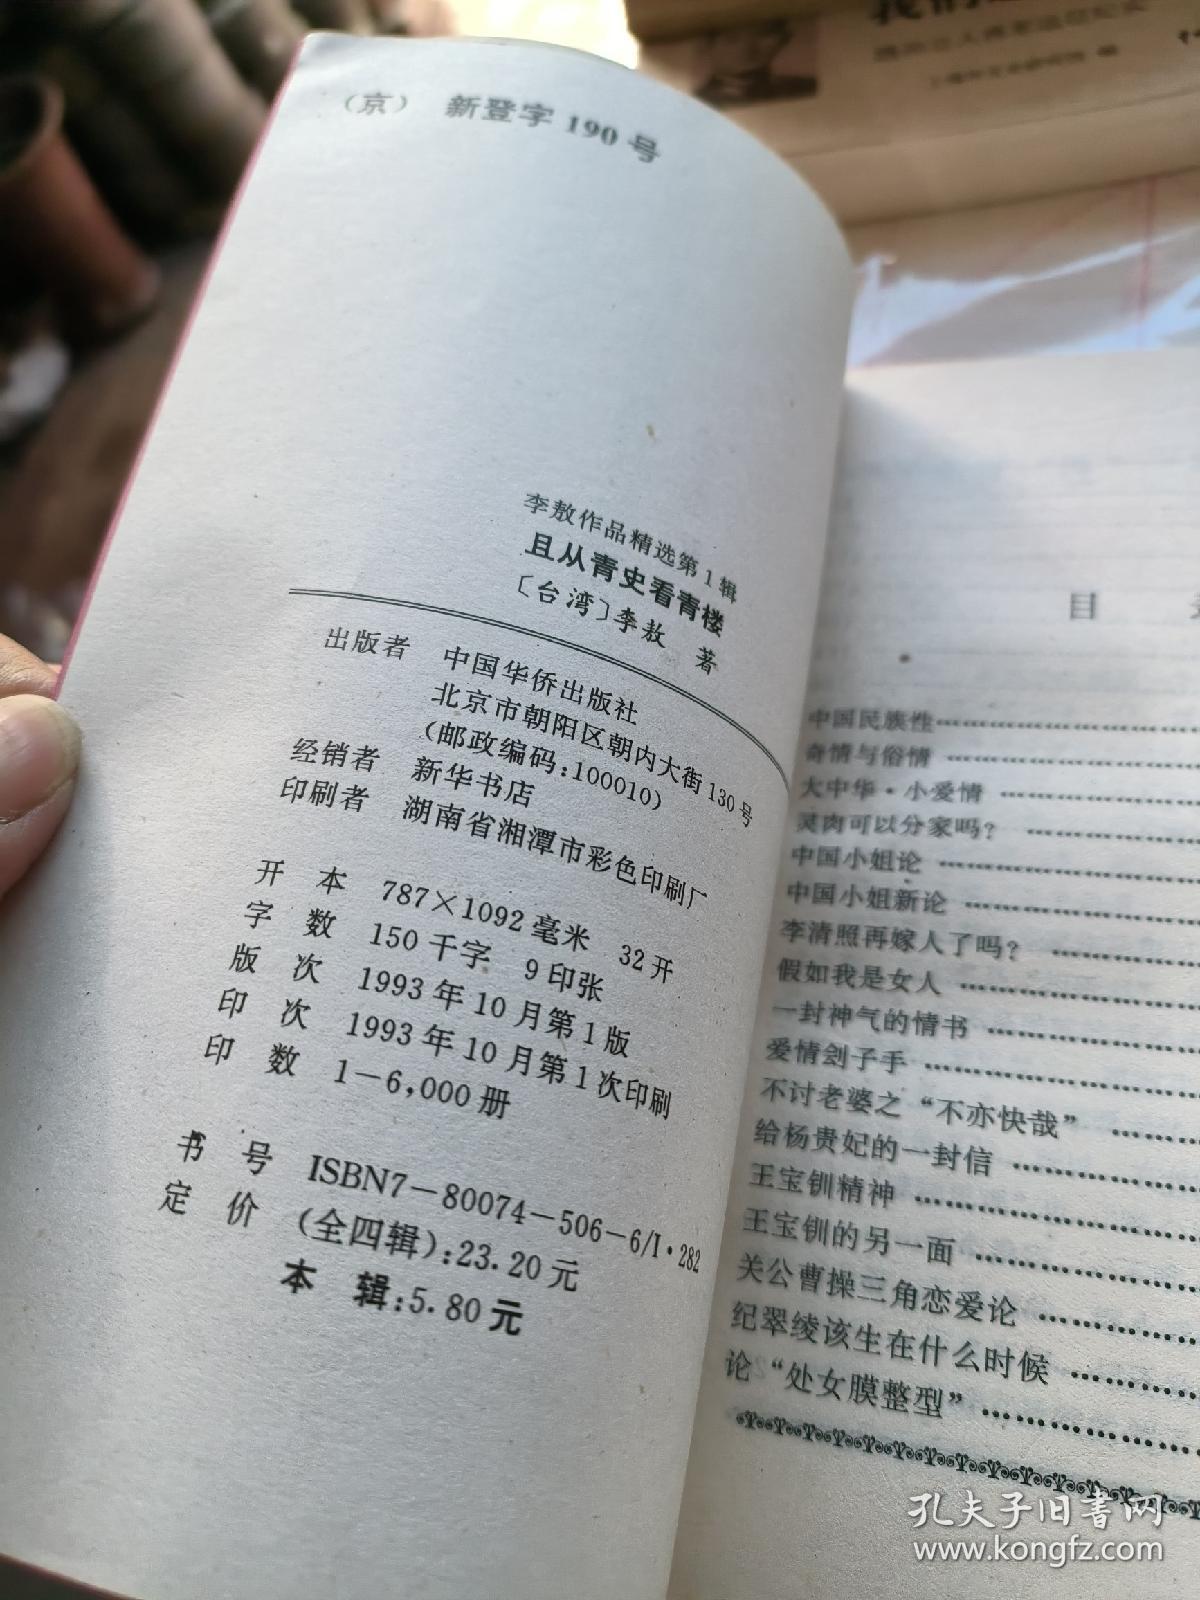 （京） 新登字 190 号
李敖作品精选第 1 辑
且从青史看青楼
〔台湾〕李敖 著
出版者 中国华侨出版社
北京市朝阳区朝内大街 130 号
(邮政编码:100010)
经销者 新华书店
印刷者 湖南省湘潭市彩色印刷厂
开 本 787×1092 毫米 32 开
字 数 150 千字 9 印张
版 次 1993 年 10 月第 1 版
印 次 1993 年 10 月第 1 次印刷
印 数 1－6,000 册
书 号 ISBN7－80074－506－6/I·282
定 价 (全四辑):23.20 元
本 辑:5.80 元
目
中国民族性
奇情与俗情
大中华·小爱情
灵肉可以分家吗？
中国小姐论
中国小姐新论
李清照再嫁人了吗？
假如我是女人
一封神气的情书
爱情刽子手
不讨老婆之“不亦快哉”
给杨贵妃的一封信
王宝钏精神
王宝钏的另一面
关公曹操三角恋爱论
纪翠绫该生在什么时候
论“处女膜整型”
孔夫子旧书网
www.kongfz.com